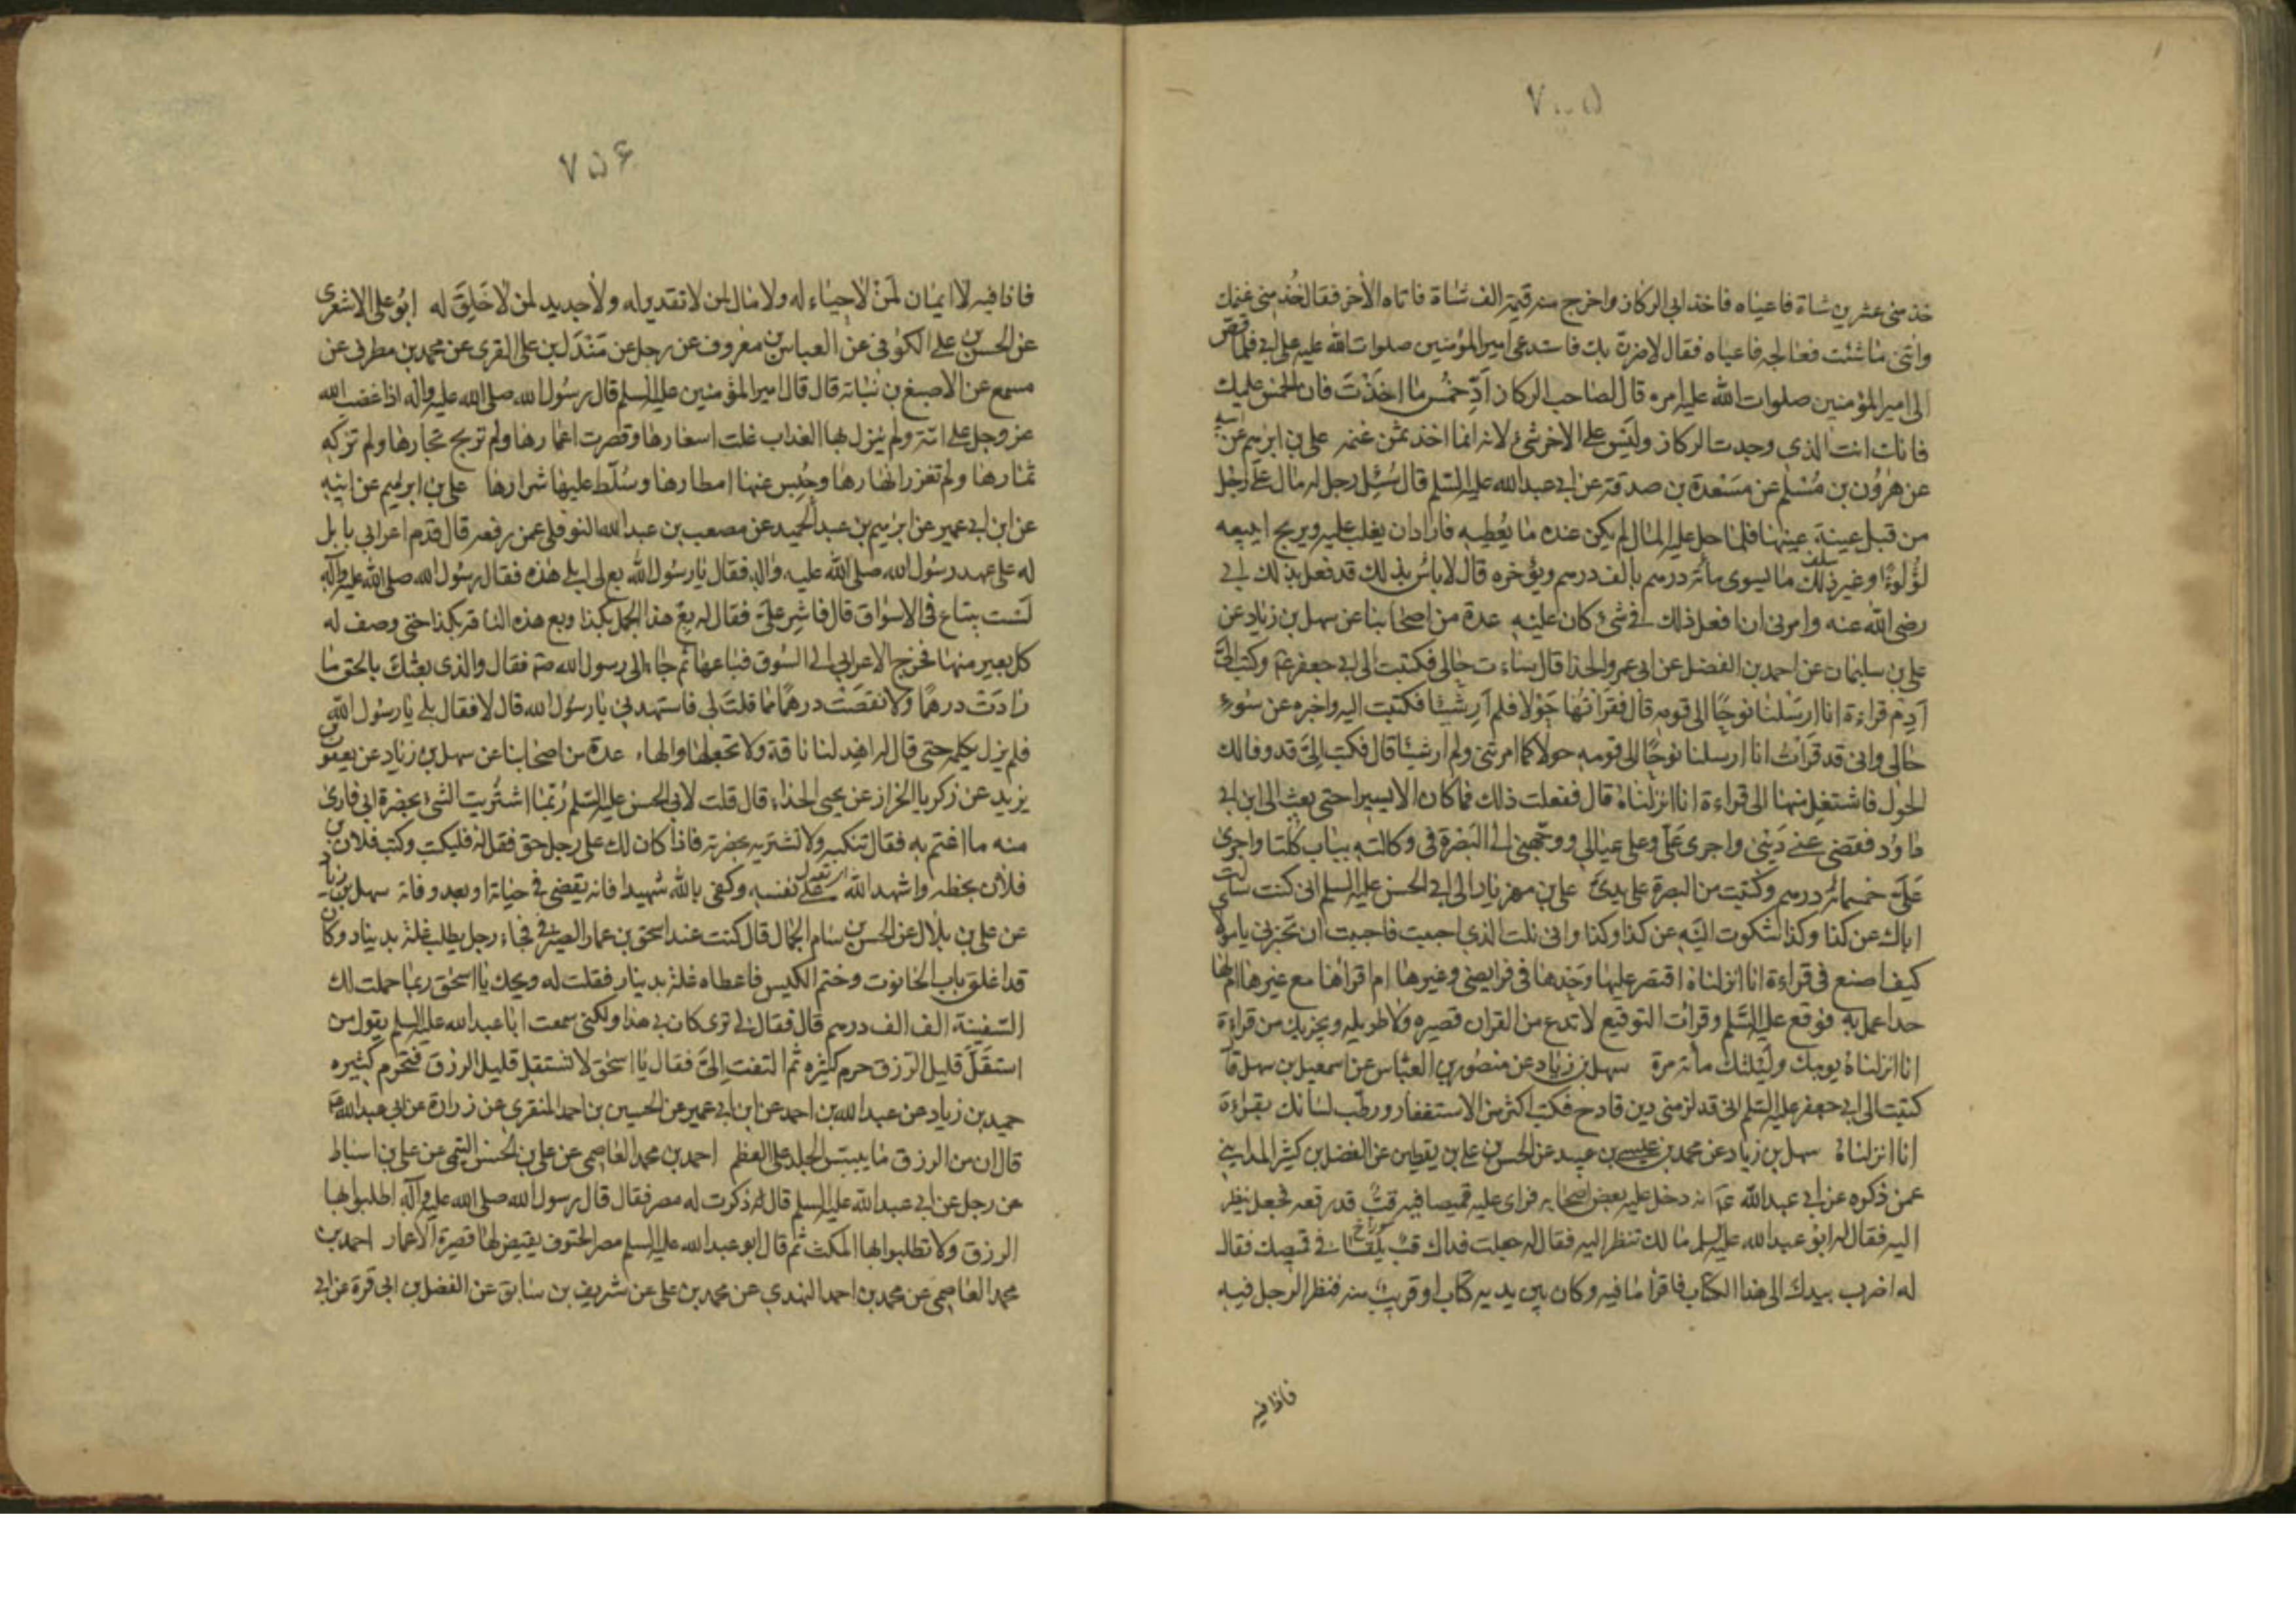 ٧٠٠۵
خذ مني عشرين شاة فاعياه فاخذ ابي الركاز واخرج منه قيمة الف شاة فاتاه الآخر فقال خذ مني غنمك
وائتني ما شئت فعالجه فاعياه فقال لاضرن بك فاستدعى امير المؤمنين صلوات الله عليه على ابي فلما قص
الى امير المؤمنين صلوات الله عليه امره قال لصاحب الركاز اَدِّ خُمس ما اخَذْتَ فان الخمس عليك
فانك انت الذي وجدت الركاز وليس على الاخر شئ لانه انما اخذ ثمن غنمه علي بن ابرهيم عن ابيه
عن هرُون بن مُسْلم عن مَسْعَدة بن صدقة عن ابي عبد الله عليه السلم قال سُئِل رجل له مال على رجل
من قبل عينة عينها فلما حل عليه المال لم يكن عنده ما يُعطيه فاراد ان يقلب عليه ويربح ابيعه
لؤلؤة او غير ذلك ما يسوى مائة درهم بالف درهم ويؤخره قال لا باس بذلك قد فعل بذلك ابي
رضي الله عنه وامرني ان افعل ذلك في شئ كان عليه عدة من اصحابنا عن سهل بن زياد عن
علي بن سليمان عن احمد بن الفضل عن ابي عمرو الحذا قال ساءت حالي فكتبت الى ابي جعفر ع وكتب اليَّ
اَدِم قراءة انا ارسَلْنا نوحًا الى قومه قال فقرأتها حَوْلا فلم اَر شيئا فكتبت اليه واخبره عن سُوء
حالي واني قد قرَأتُ انا ارسلنا نوحًا الى قومه حولا كما امرتني ولم ار شيئا قال فكتب اِليَّ قد وفا لك
الحول فاشتغِل منها الى قراءة انا انزلناهُ قال ففعلت ذلك فما كان الا يسيرا حتى بعث الى ابن ابي
داوُد فقضى عني دَيْني واجرى عَلَيَّ وعلى عيالي ووجّهني الى البَصْرة في وكالته بباب كلتا واجرى
عَلَيَّ خمسمائة درهم وكتبت من البصرة على يدي علي بن مهزيار الى ابي الحسن عليه السلم اني كنت سالت
اباك عن كذا وكذا شكوت اليه عن كذا وكذا واني نلت الذي احببت فاحببت ان تخبرني يا مولاي
كيف اصنع في قراءة انا انزلناهُ اقتصر عليها وَحْدها في فرايضي وغيرها ام اقرأها مع غيرها ام لها
حد اعمل به فوقع عليه السّلم وقرأت التوقيع لا تدع من القران قصيره ولا طويله ويجزيك من قراءة
انا انزلناهُ يومك ولَيْلتك مائة مرة سهل بن زياد عن منصُور بن العبّاس عن اسمعيل بن سهل قا
كتبت الى ابي جعفر عليه السّلم اني قد لزمني دين فادح فكتب اكثر من الاستغفار ورطّب لسانك بقراءة
انا انزلناهُ سهل بن زياد عن محمد بن عيسى بن عبيد عن الحسن بن علي بن يقطين عن الفضل بن كثير المدايني
عمن ذكره عن ابي عبد الله ع انه دخل عليه بعض اصحابه فراى عليه قميصا فيه قبٌّ قد رقعه فجعل ينظر
اليه فقال له ابو عبد الله عليه السلم ما لك تنظر اليه فقال له جعلت فداك قبّ في قميصك فقال
له اضرب بيدك الى هذا الكتاب فاقرأ ما فيه وكان بين يديه كتاب او قريب منه فنظر الرجل فيه
فاذا فيه
٧۵۶
فاذا فيه لا ايمان لمنْ لاحياء له ولا مال لمن لا تقدير له ولا جديد لمن لا خَلِقَ له ابُو علي الاشعري
عن الحسن بن علي الكوفي عن العباس بن معروف عن رجل عن مَنْدَل بن علي القري عن محمد بن مطرف عن
مسمع عن الاصبغ بن نُباتة قال قال امير المؤمنين عليه السلم قال رسُول الله صلى الله عليه واله اذا غضب الله
عز وجل على امّة ولم يُنزل بها العذاب غلت اسعارها وقصرت اعمارها ولم تربح تجارها ولم تزك
ثمارها ولم تغزر انهارها وحُبس عنها امطارها وسُلّط عليها شرارها علي بن ابرهيم عن ابيه
عن ابن ابي عمير عن ابرهيم بن عبد الحميد عن مصعب بن عبد الله النوفلي عمن رفعه قال قدم اعرابي بابل
له على عهد رسُول الله صلى الله عليه واله فقال يا رسُول الله بع لي ابلي هذه فقال رسُول الله صلى الله عليه واله
لست ببيّاع في الاسواق قال فاشِر عليَّ فقال له بعْ هذا الجمل بكذا وبع هذه الناقة بكذا حتى وصف له
كل بعير منها فخرج الاعرابي الى السُوق فباعها ثم جاء الى رسول الله ص فقال والذي بعثك بالحق ما
زادت درهمًا ولا نقصَت درهمًا مما قلتَ لي فاستهدني يا رسُول الله قال لا فقال بلى يا رسُول الله
فلم يزل يكلمه حتى قال له اهدِ لنا ناقة ولا تجعلها والها، عدة من اصحابنا عن سهل بن زياد عن يعقوب بن
يزيد عن زكريا الخزاز عن يحيى الحذاء قال قلت لابي الحسن عليه السّلم رُبّما اشتريت الشئ بحضرة ابي فارى
منه ما اغتم به فقال تنكبه ولا تشتريه بحضرته فاذا كان لك على رجل حق فقل له فليكتب وكتب فلان بن
فلان بخطه واشهد الله على نفسه وكفى بالله شهيدا فانه يقضى في حياته او بعد وفاته سهل بن زياد
عن علي بن بلال عن الحسن بن سام الجمال قال كنت عند اسحق بن عمار الصيرفي فجاء رجل يطلب غلة بدينار وكان
قد اغلق باب الحانوت وختم الكيس فاعطاه غلة بدينار فقلت له ويحك يا اسحق ربما حملت لك
السّفينة الف الف درهم قال فقال لي ترى كان بي هذا ولكني سمعت ابا عبد الله عليه السلم يقول من
استقَلَّ قليل الرّزق حرم كثيره ثم التفت اِليَّ فقال يا اسحق لا تستقل قليل الرزق فتحرم كثيره
حميد بن زياد عن عبيد الله بن احمد عن ابن ابي عمير عن الحسين بن احمد المنقري عن زرارة عن ابي عبد الله ع
قال ان من الرزق ما ييبس الجلد على العظم احمد بن محمد العاصمي عن علي بن الحسن التيمي عن علي بن اسباط
عن رجل عن ابي عبد الله عليه السلم قال ذكرت له مصر فقال قال رسول الله صلى الله عليه واله اطلبوا بها
الرزق ولا تطلبوا بها المكث ثم قال ابو عبد الله عليه السلم مصر الحتوف يقيض لها قصيرة الاعمار احمد بن
محمد العاصمي عن محمد بن احمد النهدي عن محمد بن علي عن شريف بن سابق عن الفضل بن ابي قرة عن ابي